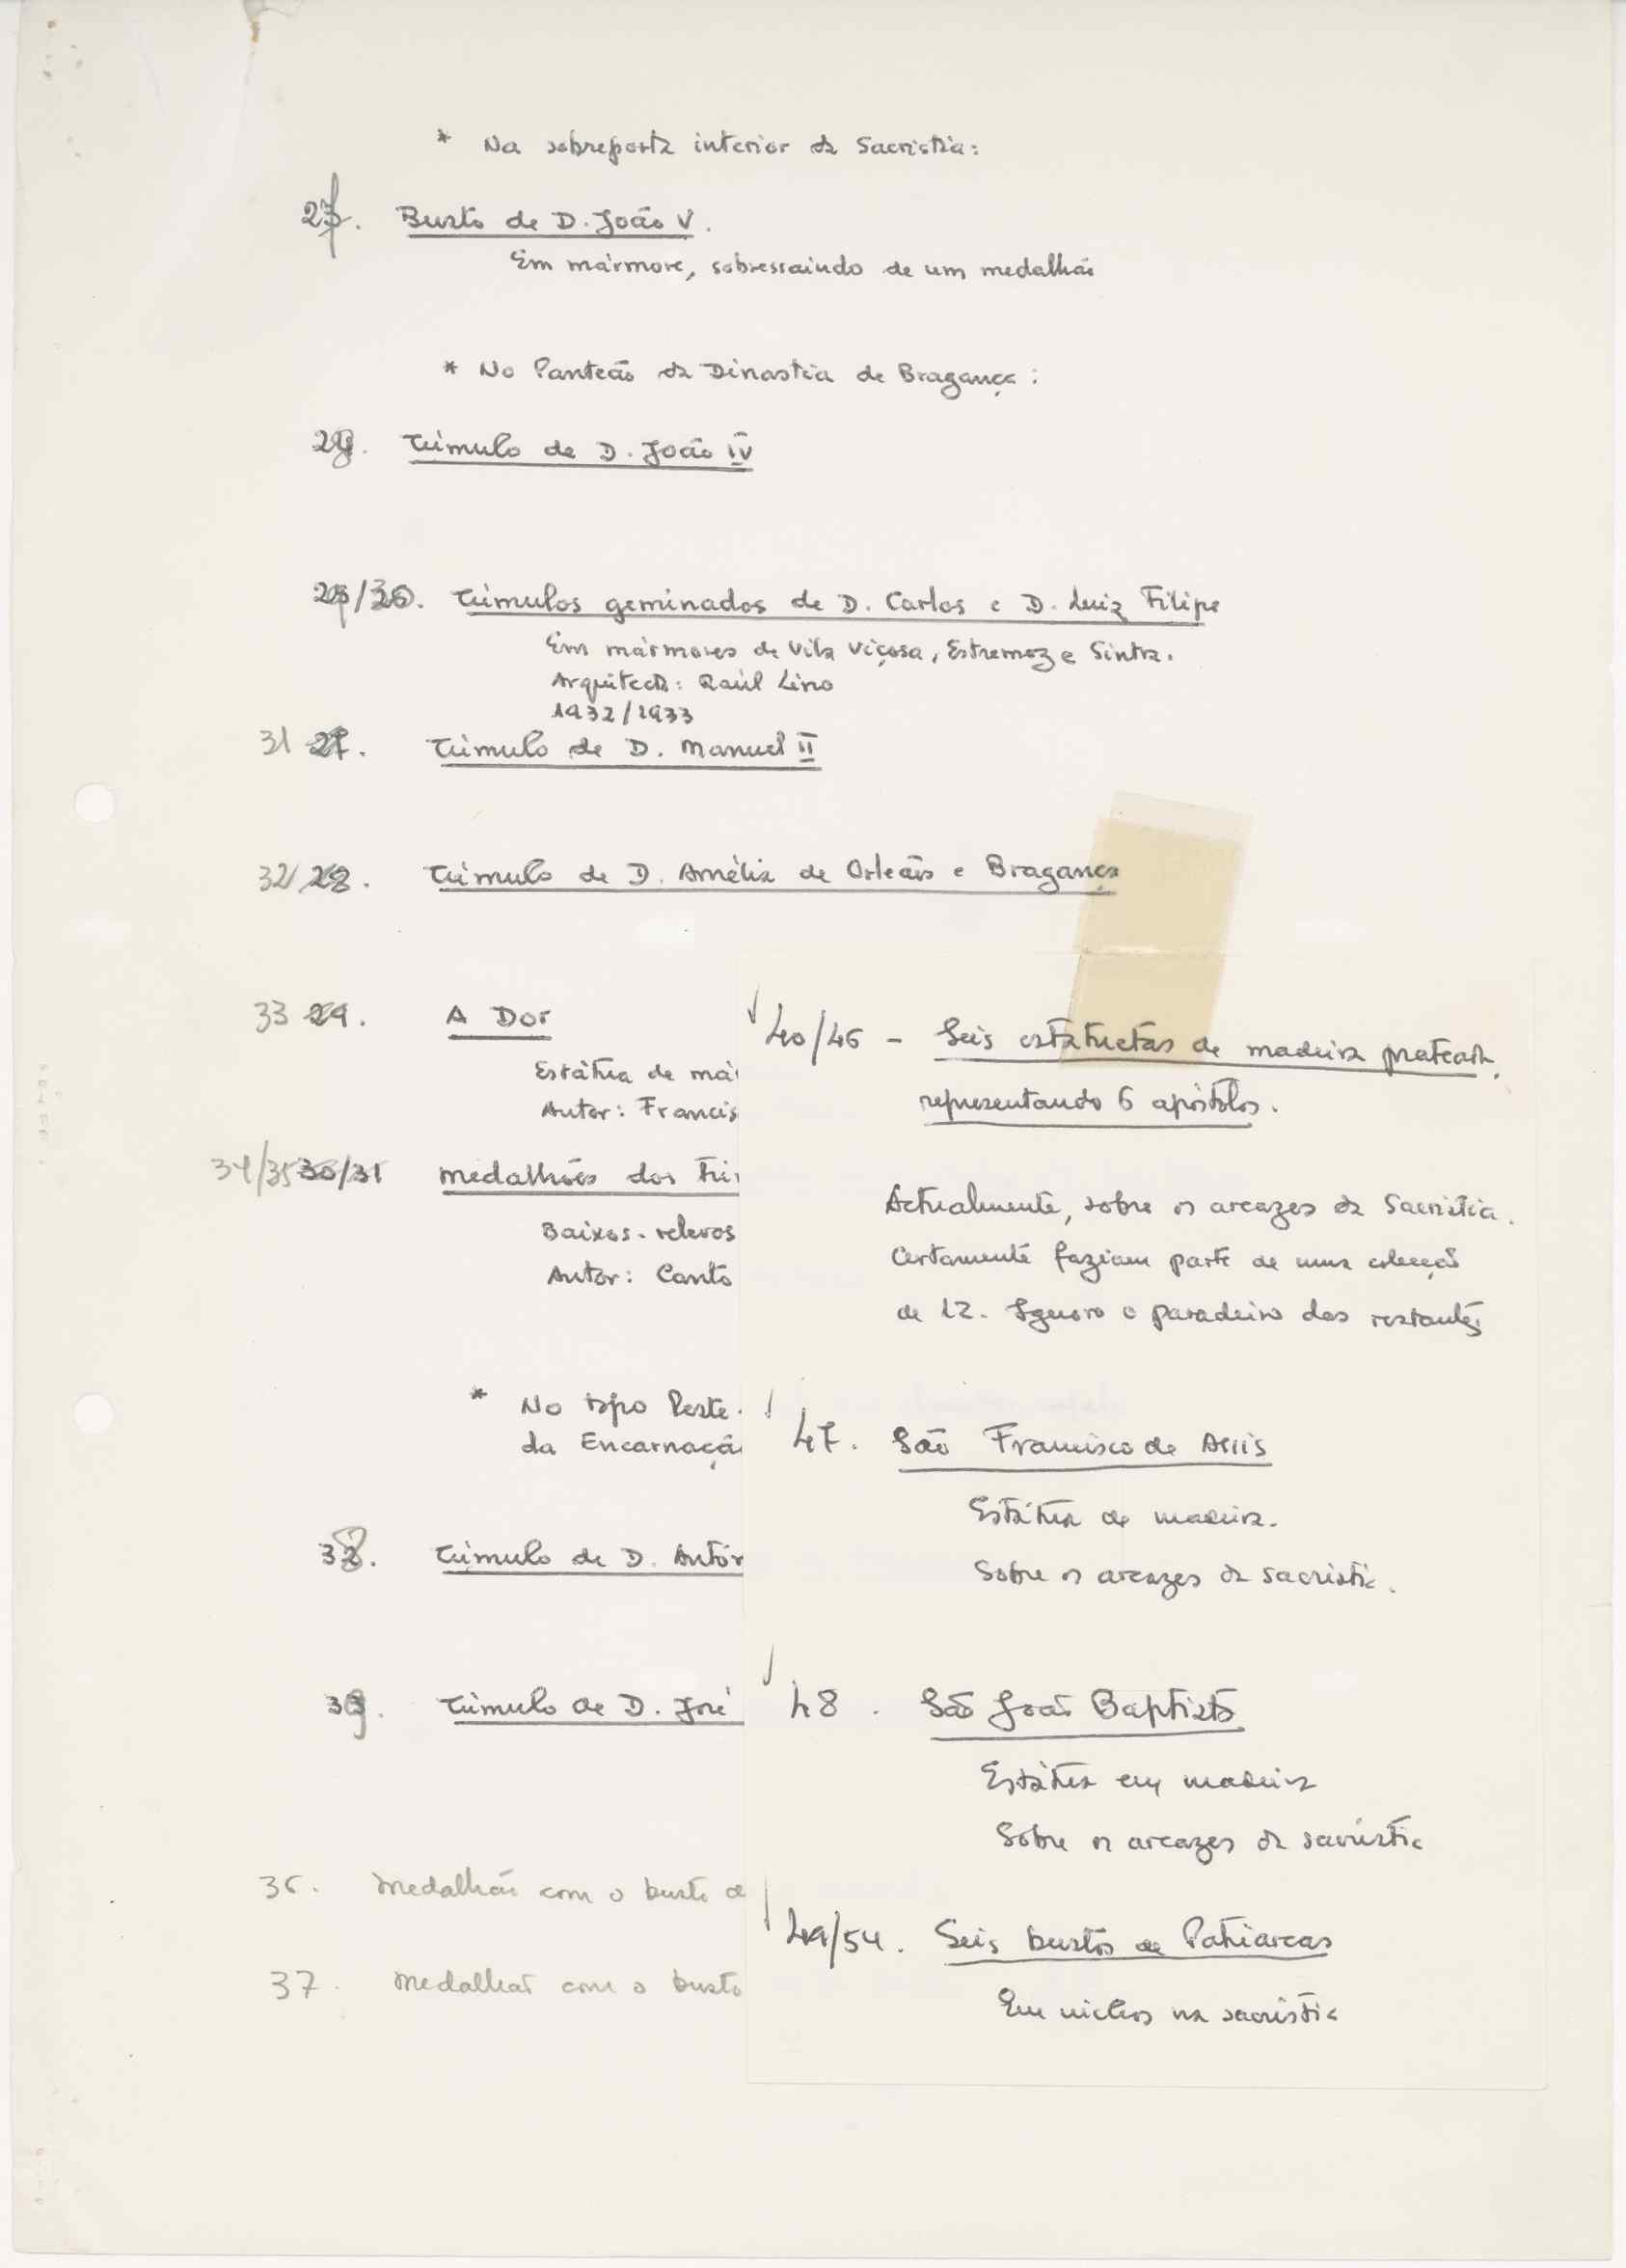 * Na sobreporta interior da Sacristia:
27. Busto de D. João V.
Em mármore, sobressaindo de um medalhão
* No Panteão da Dinastia de Bragança:
28. Túmulo de D. João IV
29/30. Túmulos geminados de D. Carlos e D. Luiz Filipe
Em mármores de Vila Viçosa, Estremoz e Sintra.
Arquitecto: Raúl Lino
1932/1933
31 27. Túmulo de D. Manuel II
32/28. Túmulo de D. Amélia de Orleãis e Bragança
33 29. A Dor
Estátua de má
Autor: Francis
34/35 30/31 Medalhões dos
Baixos-relevos
Autor: Canto
* No topo Leste
da Encarnaçã
38. Túmulo de D. Antón
39. Túmulo de D. José
36. Medalhão com o busto d
37. Medalhão com o busto
40/46 - Seis estatuetas de madeira prateada,
representando 6 apóstolos.
Actualmente, sobre os arcazes da Sacristia.
Certamente faziam parte de uma colecção
de 12. Ignoro o paradeiro dos restantes
47. São Francisco de Assis
Estátua de madeira.
Sobre os arcazes da sacristia.
48. São João Baptista
Estátua em madeira
Sobre os arcazes da sacristia
49/54. Seis bustos de Patriarcas
Em nichos na sacristia